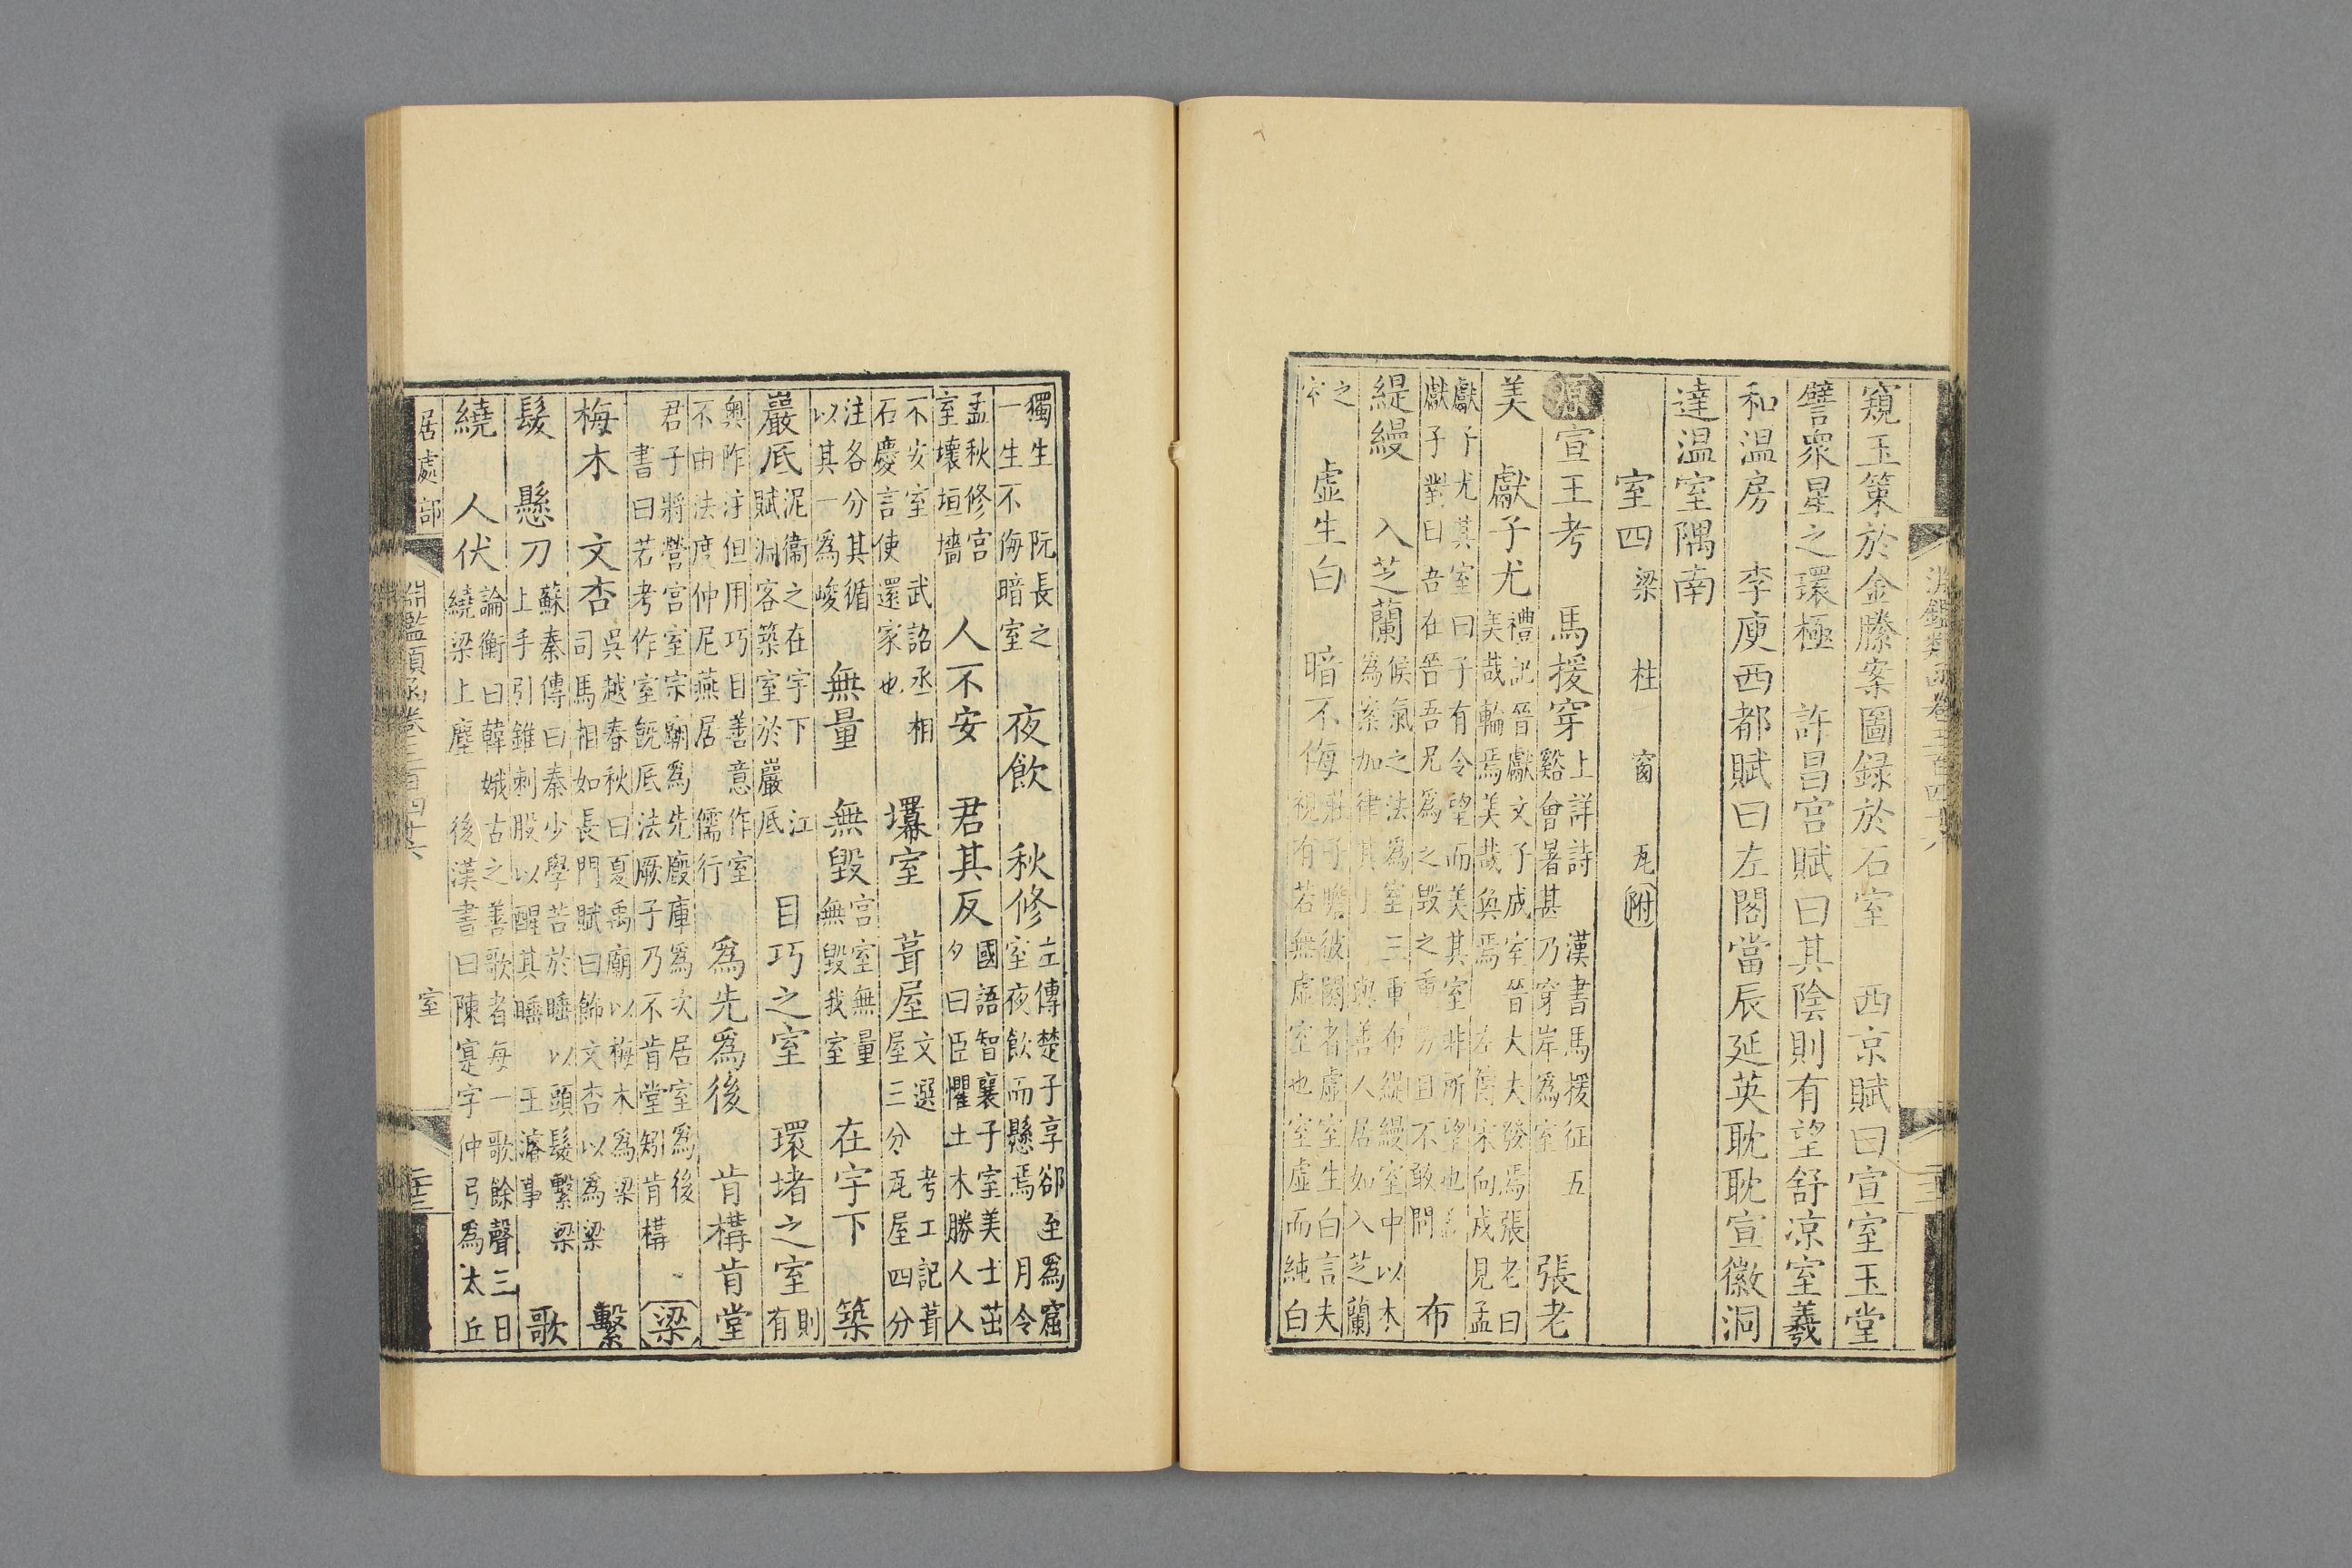 淵鑑類函卷三百四十六
窺玉策於金縢案圖録於石室　西京賦曰宣室玉堂
譬衆星之環極　許昌宫賦曰其陰則有望舒凉室羲
和温房　李庾西都賦曰左閣當辰延英耽耽宣徽洞
達温室隅南
室四　梁　柱　窗　瓦附
原宣王考　馬援穿　上詳詩　漢書馬援征五
谿會暑甚乃穿岸爲室　張老
美　獻子尤　禮記晉獻文子成室晉大夫發焉張老曰
美哉輪焉美哉奐焉　左傳宋向戌見孟
獻子尤其室曰子有令望而美其室非所望也
獻子對曰吾在晉吾兄爲之毀之重勞且不敢問　布
緹縵　入芝蘭　候氣之法爲室三重布緹縵室中以木
爲案加律其上　與善人居如入芝蘭
之
室　虚生白　暗不侮　莊子瞻彼闋者虚室生白言夫
視有若無虚室也室虚而純白
獨生　阮長之
一生不侮暗室　夜飲　秋修　左傳楚子享郤至爲窟
室夜飲而懸焉　月令
孟秋修宫
室壞垣墻　人不安　君其反　國語智襄子室美士茁
夕曰臣懼土木勝人人
不安室　武詔丞相
石慶言使還家也　壞室　葺屋　文選　考工記葺
屋三分瓦屋四分
注各分其循
以其一爲峻　無量　無毀　宫室無量
無毀我室　在宇下　築
巖底　泥衞之在宇下　江
賦淵客築室於巖底　目巧之室　環堵之室　則
有
奥阼注但用巧目善意作室
不由法度仲尼燕居　儒行　爲先爲後　肯構肯堂
君子將營宫室宗廟爲先廏庫爲次居室爲後
書曰若考作室旣底法厥子乃不肯堂矧肯構　梁
梅木　文杏　吳越春秋曰夏禹廟以梅木爲梁
司馬相如長門賦曰飾文杏以爲梁　繫
髮　懸刀　蘇秦傳曰秦少學苦於睡以頭髮繫梁
上手引錐刺股以醒其睡　王濬事　歌
繞　人伏　論衡曰韓娥古之善歌者每一歌餘聲三日
繞梁上塵　後漢書曰陳寔字仲弓爲太丘
居處部　淵鑑類函卷三百四十六　室